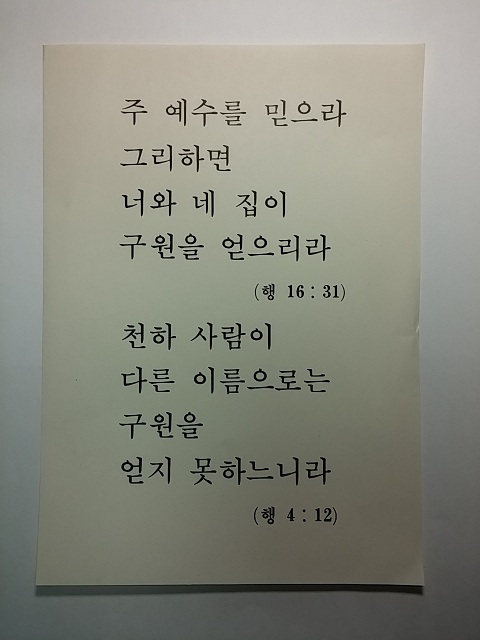 주 예수를 믿으라
그리하면
너와 네 집이
구원을 얻으리라
(행 16 : 31)
천하 사람이
다른 이름으로는
구원을
얻지 못하느니라
(행 4 : 12)